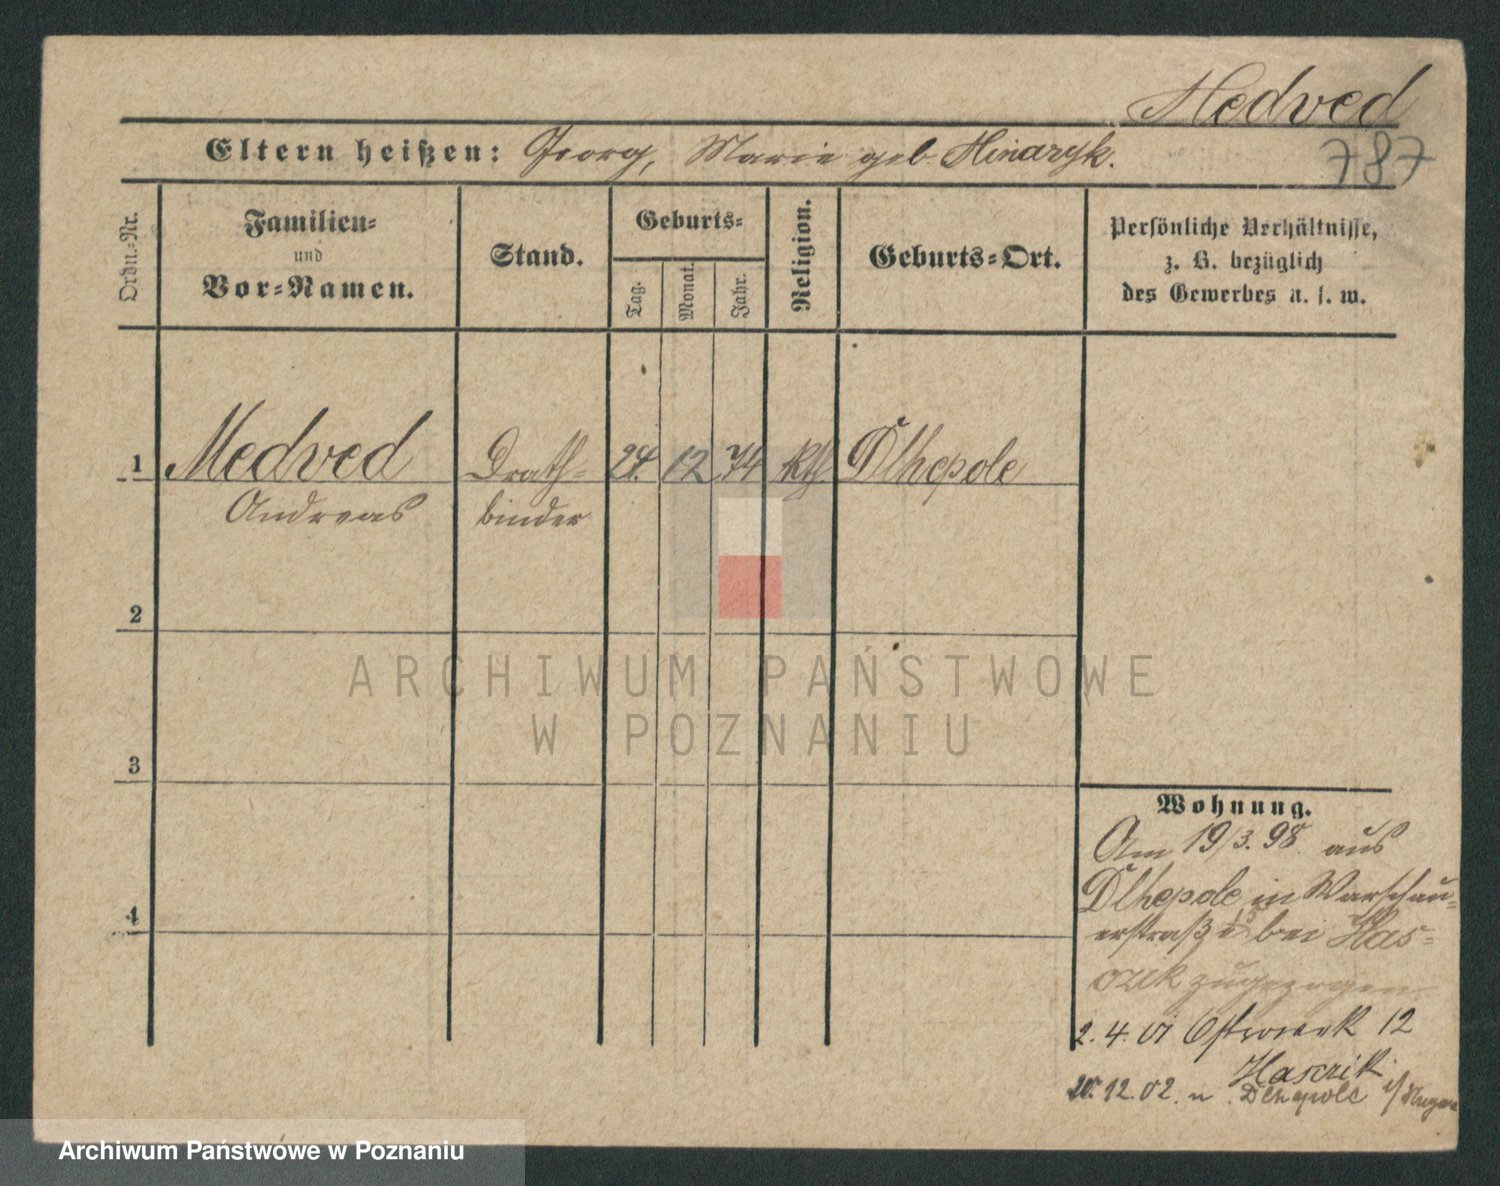 Medved
787
Eltern heißen: Georg, Marie geb. Hinaryk.
Ordn.-Nr.
Familien-
und
Vor-Namen.
Stand.
Geburts-
Tag.
Monat.
Jahr.
Religion.
Geburts-Ort.
Persönliche Verhältnisse,
z. B. bezüglich
des Gewerbes u. s. w.
1 Medved Drath- 24. 12 74 kth. Dlhepole
Andreas binder
2
3
4
ARCHIWUM PAŃSTWOWE
W POZNANIU
Wohnung.
Am 19/3. 98 aus
Dlhepole in Warschau-
erstraß bei Has-
czek zugezogen
2. 4. 01 Ostrowek 12
Hasczik
20. 12. 02. n. Dlhepole
Archiwum Państwowe w Poznaniu